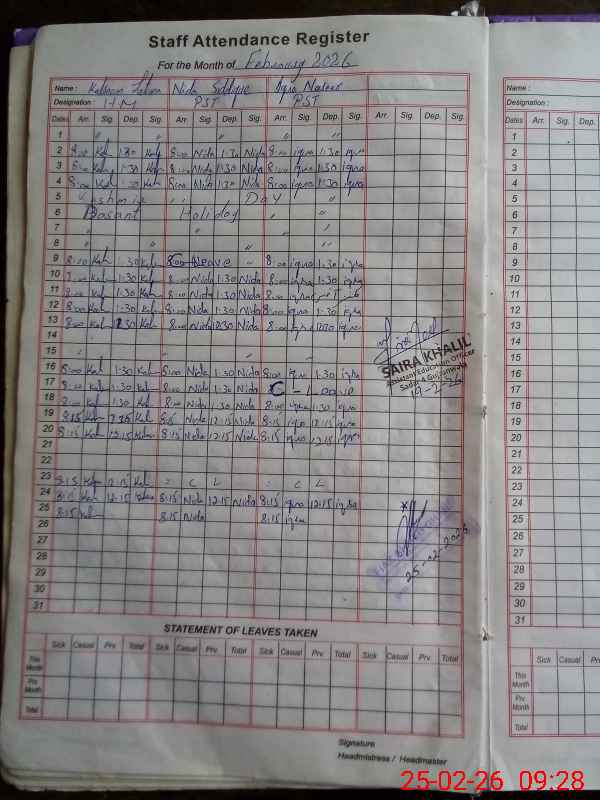 Staff Attendance Register
For the Month of February 2026
Name : Nida Iqra
Designation : HM PST PST
Dates Arr. Sig. Dep. Sig. Arr. Sig. Dep. Sig. Arr. Sig. Dep. Sig. Arr. Sig. Dep. Sig.
1
2 8:00 Kal 1:30 Kal 8:00 Nida 1:30 Nida 8:00 iqra 1:30 iqra
3 8:00 Kal 1:30 Kal 8:00 Nida 1:30 Nida 8:00 iqra 1:30 iqra
4 8:00 Kal 1:30 Kal 8:00 Nida 1:30 Nida 8:00 iqra 1:30 iqra
5 Kashmir DAY
6 Basant Holiday
7
8
9 8:00 Kal 1:30 Kal Leave 8:00 iqra 1:30 iqra
10 8:00 Kal 1:30 Kal 8:00 Nida 1:30 Nida 8:00 iqra 1:30 iqra
11 8:00 Kal 1:30 Kal 8:00 Nida 1:30 Nida 8:00 iqra
12 8:00 Kal 1:30 Kal 8:00 Nida 1:30 Nida 8:00 iqra 1:30 iqra
13 8:00 Kal 12:30 Kal 8:00 Nida 12:30 Nida 8:00 iqra iqra
14
15
16 8:00 Kal 1:30 Kal 8:00 Nida 1:30 Nida 8:00 iqra 1:30 iqra
17 8:00 Kal 1:30 Kal 8:00 Nida 1:30 Nida C
18 8:00 Kal 1:30 Kal 8:00 Nida 1:30 Nida 8:00 iqra 1:30 iqra
19 8:15 Kal 12:15 Kal 8:15 Nida 12:15 Nida 8:15 iqra 12:15 iqra
20 8:15 Kal 12:15 8:15 Nida 12:15 Nida 8:15 iqra 12:15 iqra
21
22
23 8:15 Kal 12:15 Kal = C L = C L
24 8:15 Kal 12:15 8:15 Nida 12:15 Nida 8:15 iqra 12:15 iqra
25 8:15 Kal 8:15 Nida 8:15 iqra
26
27
28
29
30
31
SAIRA KHALIL
Assistant Education Officer
Sadar 4 Gujranwala
19-2-26
25-02-2026
STATEMENT OF LEAVES TAKEN
Sick Casual Prv. Total Sick Casual Prv. Total Sick Casual Prv. Total Sick Casual Prv. Total
This Month
Prv Month
Total
Signature
Headmistress / Headmaster
Name :
Designation :
Dates Arr. Sig. Dep. Sig.
1
2
3
4
5
6
7
8
9
10
11
12
13
14
15
16
17
18
19
20
21
22
23
24
25
26
27
28
29
30
31
Sick Casual Prv. Total
This Month
Prv Month
Total
25-02-26 09:28